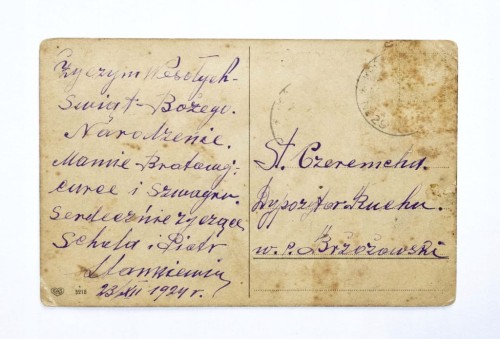 Życzym Wesołych
Świat Bożego.
Narodzenie.
Mamie Bratowy
curce i Szwagru.
Serdecznie życzące
Schula i Piotr
Mankiewicz
23 XII 1924 r.
St. Czeremcha.
Dypozytor Ruchu.
w. P. Brzozowski